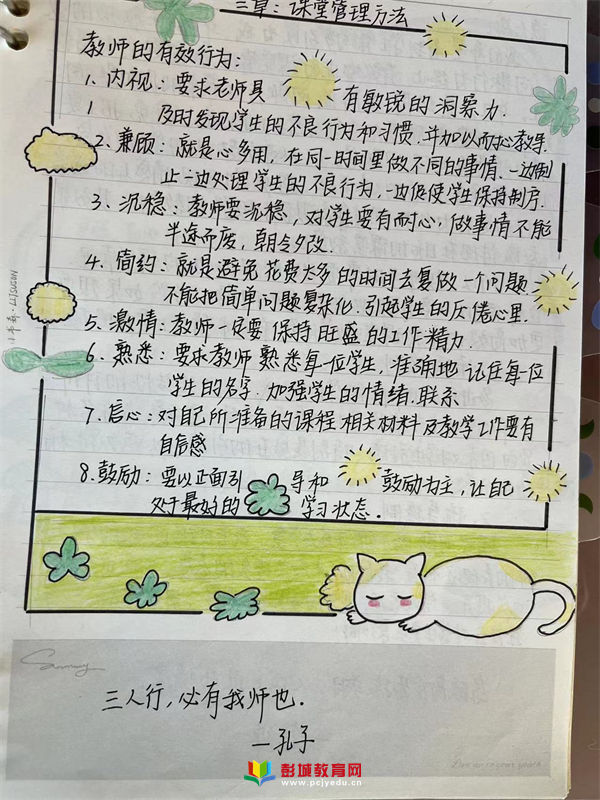 三章：课堂管理方法
教师的有效行为：
1、内视：要求老师具有敏锐的洞察力.
及时发现学生的不良行为和习惯.并加以耐心教导.
2、兼顾：就是心多用，在同一时间里做不同的事情.一边制
止一边处理学生的不良行为，一边促使学生保持制序.
3、沉稳：教师要沉稳，对学生要有耐心，做事情不能
半途而废，朝令夕改.
4、简约：就是避免花费太多的时间去复做一个问题.
不能把简单问题复杂化.引起学生的厌倦心里.
5、激情：教师一定要保持旺盛的工作精力.
6、熟悉：要求教师熟悉每一位学生，准确地记住每一位
学生的名字.加强学生的情绪.联系
7、信心：对自己所准备的课程相关材料及教学工作要有
自信感
8.鼓励：要以正面引导和鼓励为主，让自己
处于最好的学习状态.
三人行，必有我师也.
—孔子
彭城教育网
www.pcjyedu.cn